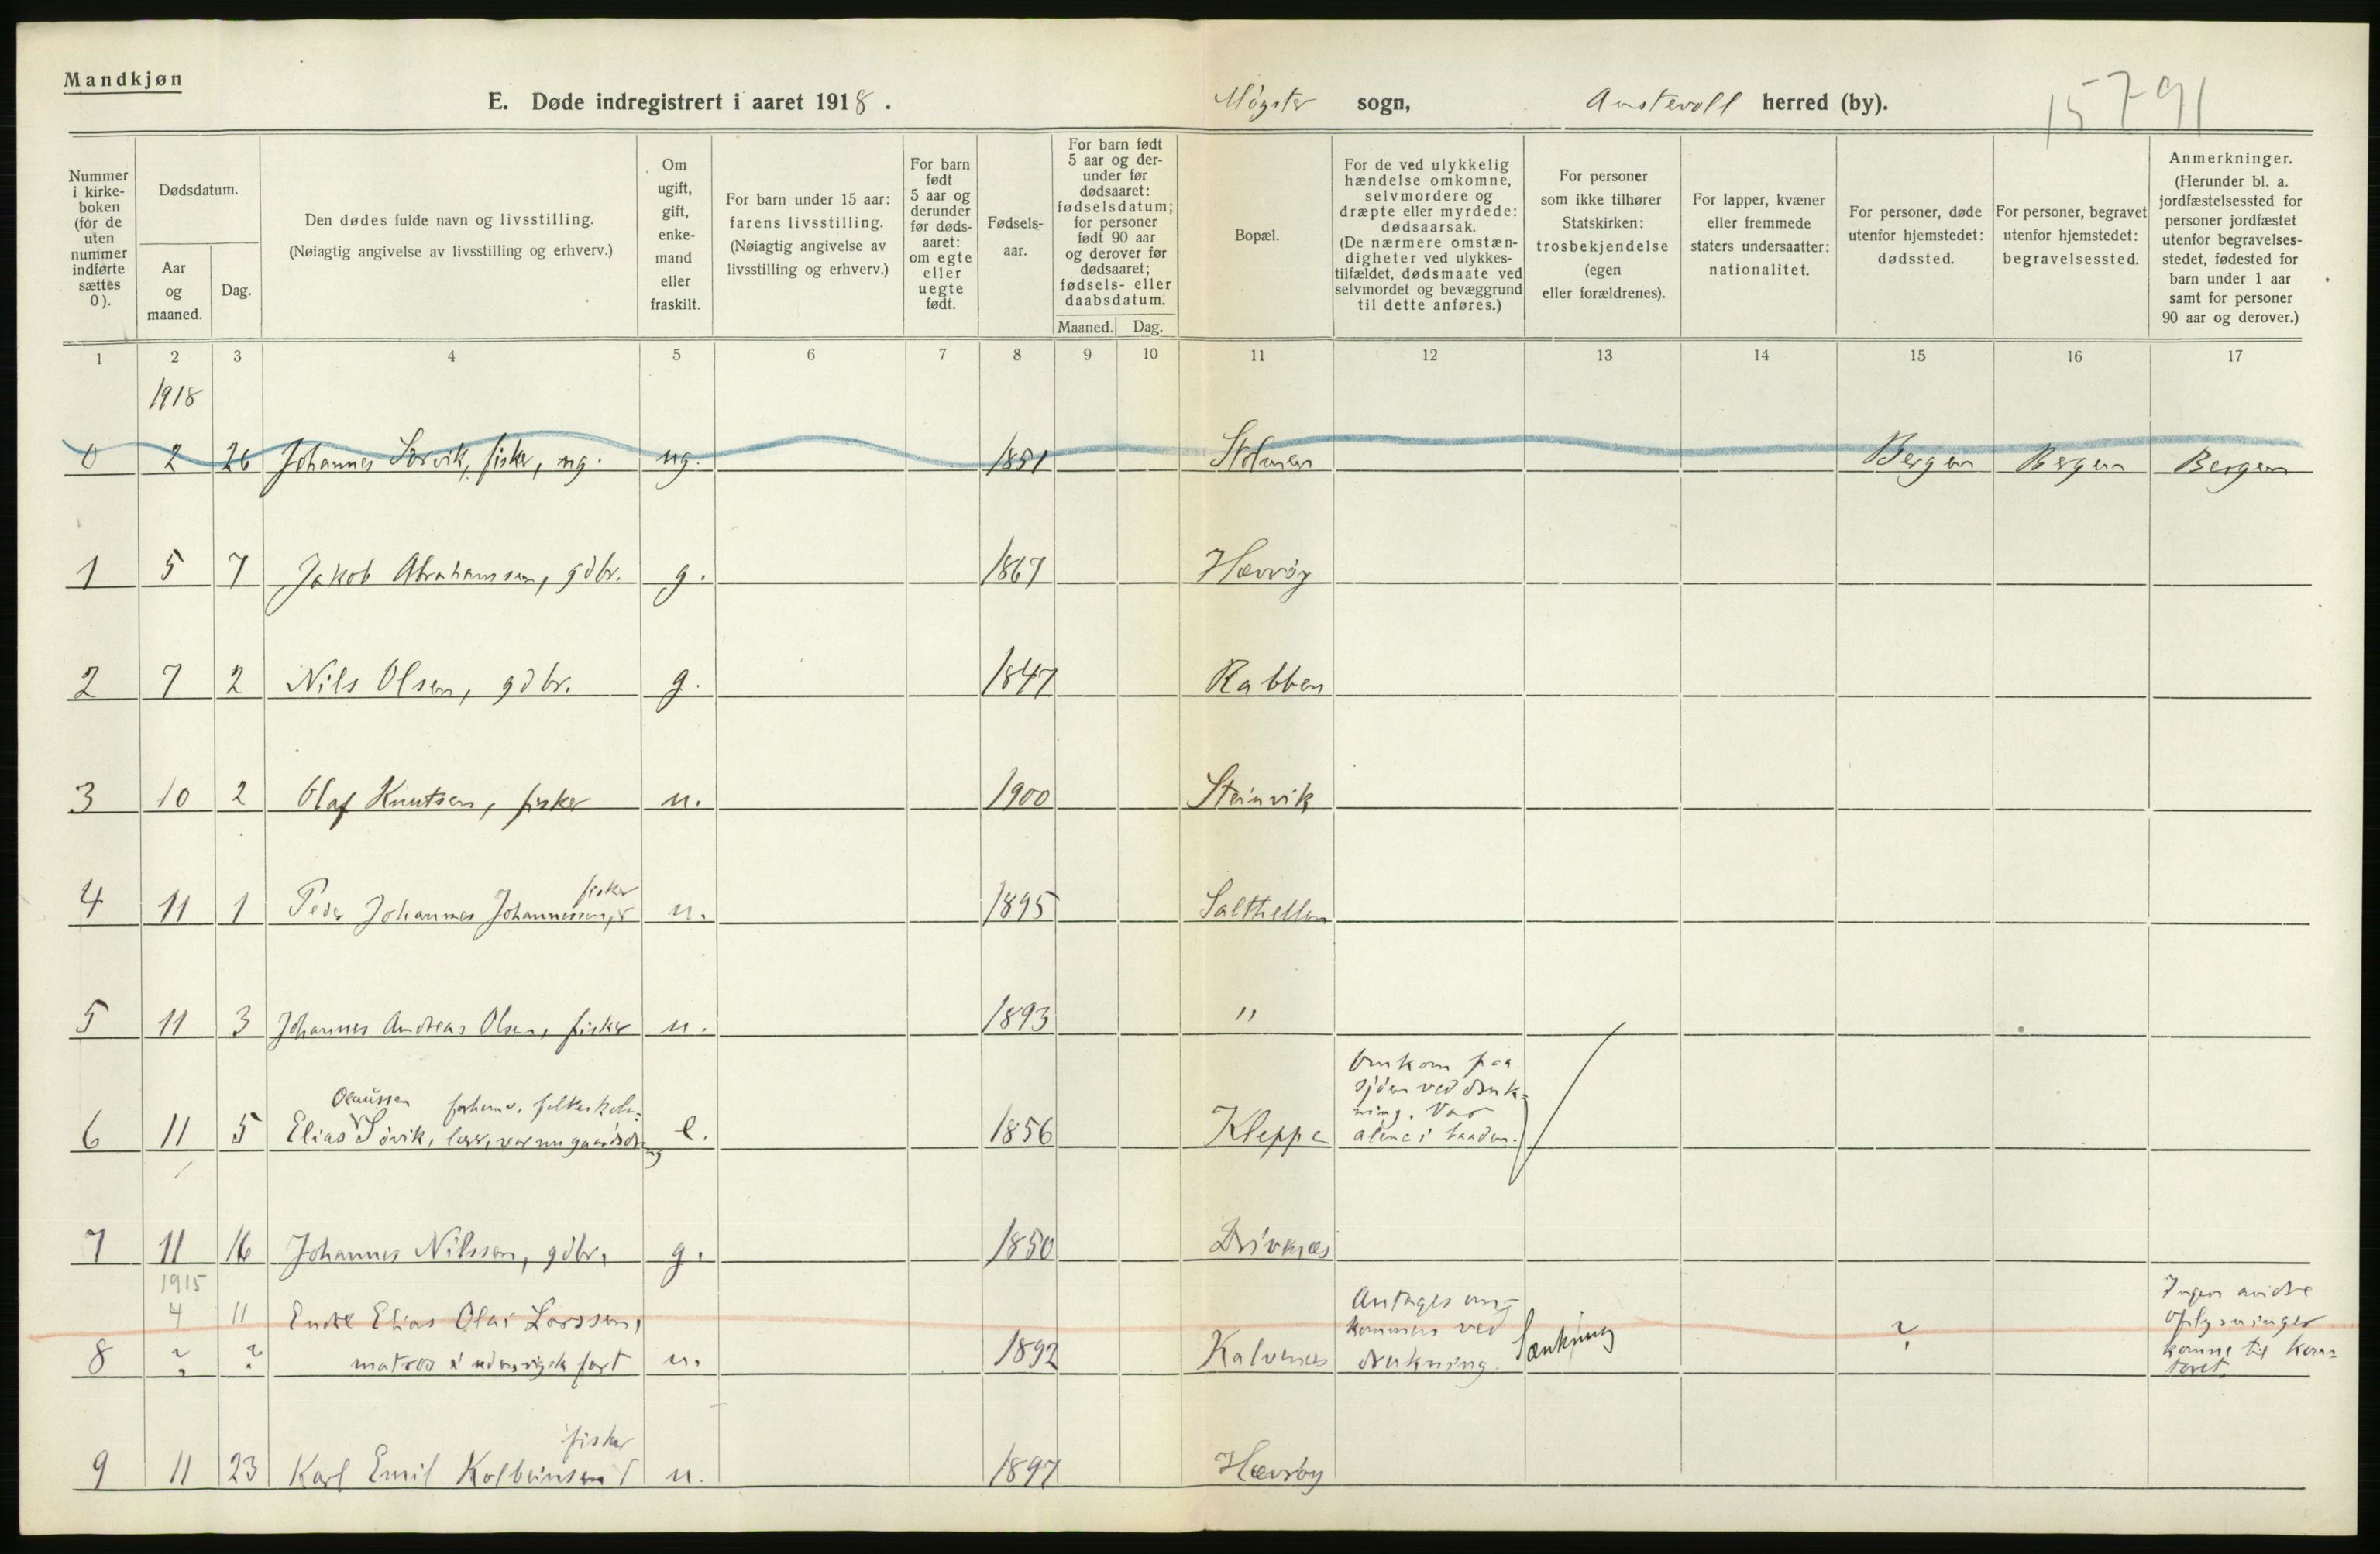 Mandkjøn
E. Døde indregistrert i aaret 1918. Møgster sogn, Austevoll herred (by). 15791
Nummer i kirke-boken (før de uten nummer indførte sættes 0).
Dødsdatum.
Aar og maaned.
Dag.
Den dødes fulde navn og livsstilling.
(Nøiagtig angivelse av livsstilling og erhverv.)
Om ugift, gift, enke-mand eller fraskilt.
For barn under 15 aar: farens livsstilling.
(Nøiagtig angivelse av livsstilling og erhverv.)
For barn født 5 aar og derunder før døds-aaret: om egte eller uegte født.
Fødsels-aar.
For barn født 5 aar og der-under før dødsaaret: fødselsdatum; for personer født 90 aar og derover før dødsaaret; fødsels- eller daabsdatum.
Maaned. Dag.
Bopæl.
For de ved ulykkelig hændelse omkomne, selvmordere og dræpte eller myrdede: dødsaarsak.
(De nærmere omstæn-digheter ved ulykkes-tilfældet, dødsmaate ved selvmordet og bevæggrund til dette anføres.)
For personer som ikke tilhører Statskirken: trosbekjendelse (egen eller forældrenes).
For lapper, kvæner eller fremmede staters undersaatter: nationalitet.
For personer, døde utenfor hjemstedet: dødssted.
For personer, begravet utenfor hjemstedet: begravelsessted.
Anmerkninger.
(Herunder bl. a. jordfæstelsessted for personer jordfæstet utenfor begravelses-stedet, fødested for barn under 1 aar samt for personer 90 aar og derover.)
1 2 3 4 5 6 7 8 9 10 11 12 13 14 15 16 17
1918
0 2 26 Johannes Sørvik, fisker, ug. ug. 1851 Stolmen Bergen Bergen Bergen
1 5 7 Jakob Abrahamsen, gdbr. g. 1867 Hævrøy
2 7 2 Nils Olsen, gdbr. g. 1847 Rabben
3 10 2 Olaf Knutsen, fisker u. 1900 Steinvik
fisker
4 11 1 Peder Johannes Johannessen, u. 1895 Salthellen
5 11 3 Johannes Andreas Olsen, fisker u. 1893 "
Omkom paa
sjøen ved druk=
Olaussen forhenv. folkeskole=
ning. Var
6 11 5 Elias Søvik, lær, var nu gaardsdreng e. 1856 Kleppe alene i baaden.
7 11 16 Johannes Nilssen, gdbr. g. 1850 Drivenes
1915
4 11 Endre Elias Olai Larssen, Antages om- Ingen andre
kommen ved Sænkning oplysninger
8 ? ? matros i udenrigsk fart u. 1892 Kalvenes drukning. ? komne til kon=
toret.
fisker
9 11 23 Karl Emil Kolbeinsen u. 1897 Hævrøy